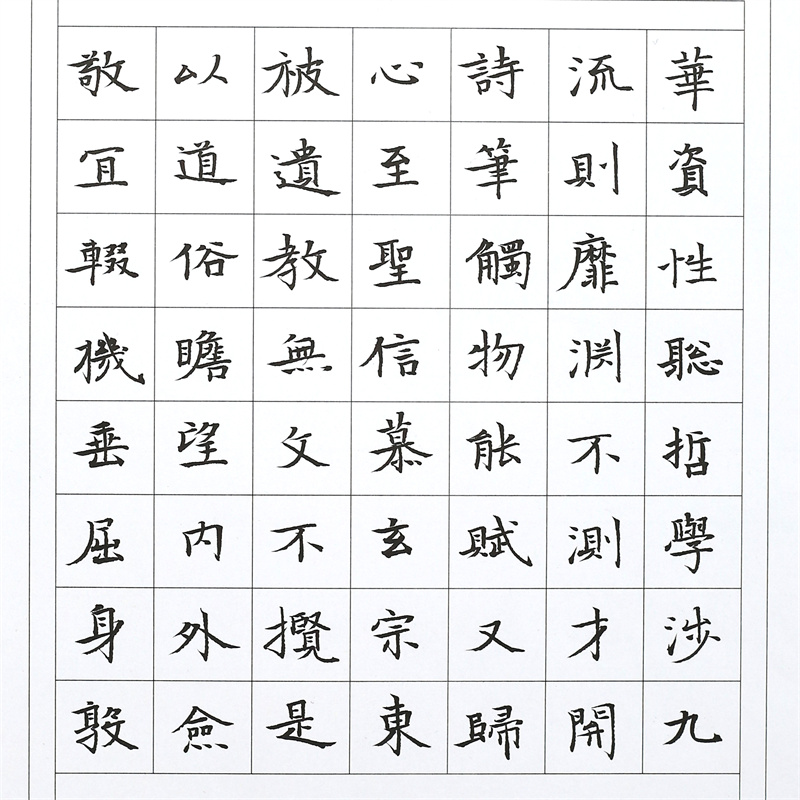 華資性聡哲學涉九
流則靡渕不測才開
詩筆觸物能賦又歸
心至聖信慕玄宗東
被遺教無文不攬是
以道俗瞻望内外僉
敬冝輟機垂屈身敦